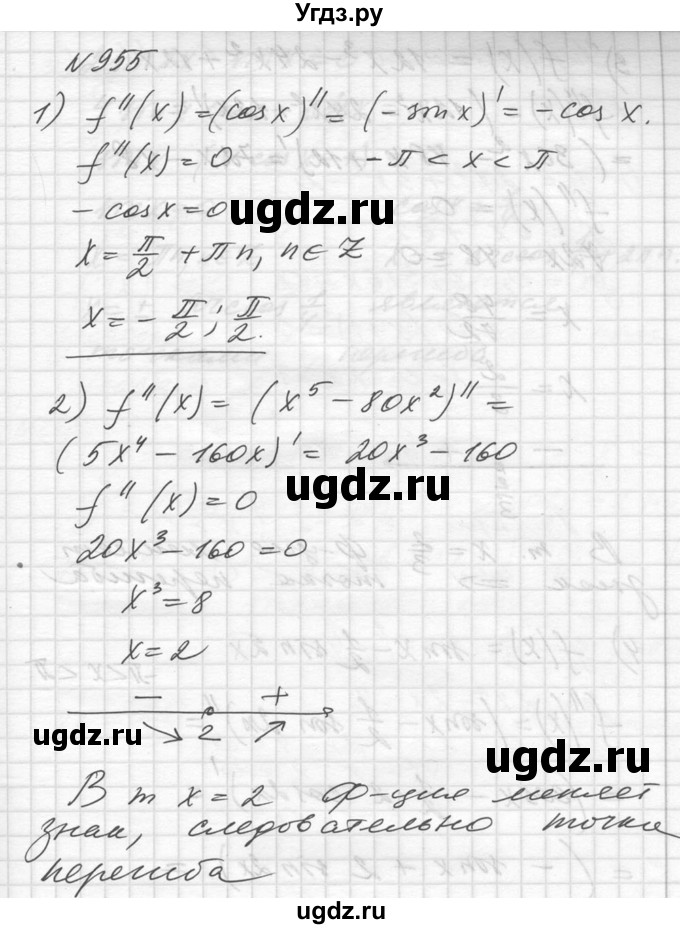 Угдз.ру
N 955
1) f''(x) = (cos x)'' = (-sin x)' = -cos x.
f''(x) = 0 -π < x < π
- cos x = 0
ugdz.ru
x = π/2 + πn, n ∈ Z
x = - π/2 ; π/2.
2) f''(x) = (x⁵ - 80x²)'' =
(5x⁴ - 160x)' = 20x³ - 160
f''(x) = 0
ugdz.ru
20x³ - 160 = 0
x³ = 8
x = 2
- +
ugdz.ru
↘ 2 ↗
ugdz.ru
В т x = 2 ф-ция меняет
знак, следовательно точка
перегиба
ugdz.ru
ugdz.ru